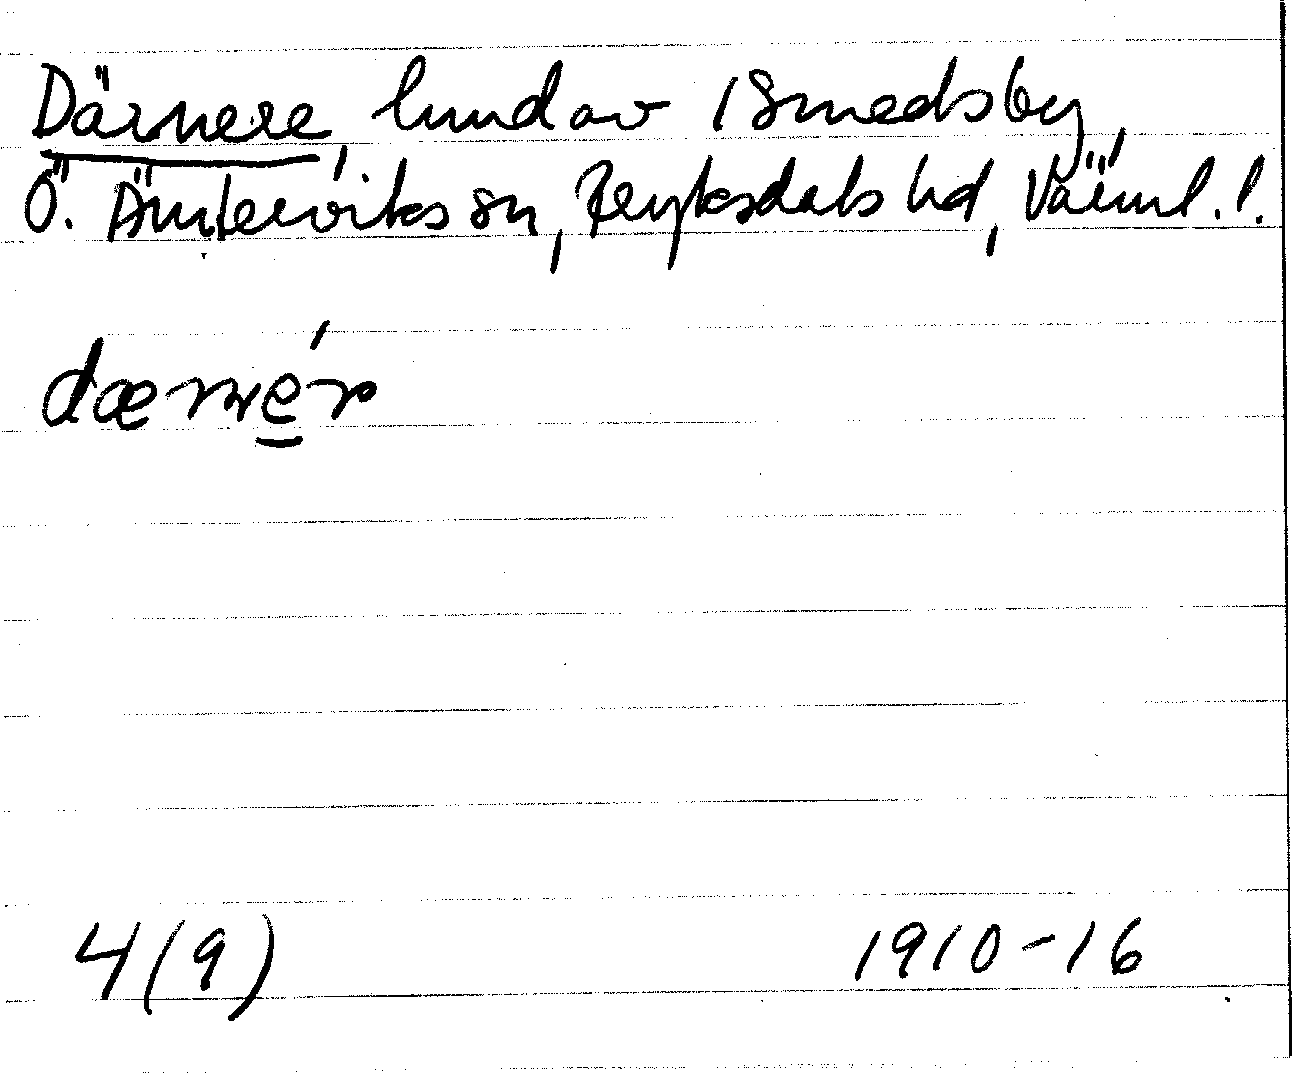 Därnere, lund av /Smedsby,
Ö. Ämterviks sn, Fryksdals hd, Värml. l.
dærner
4(9) 1910-16